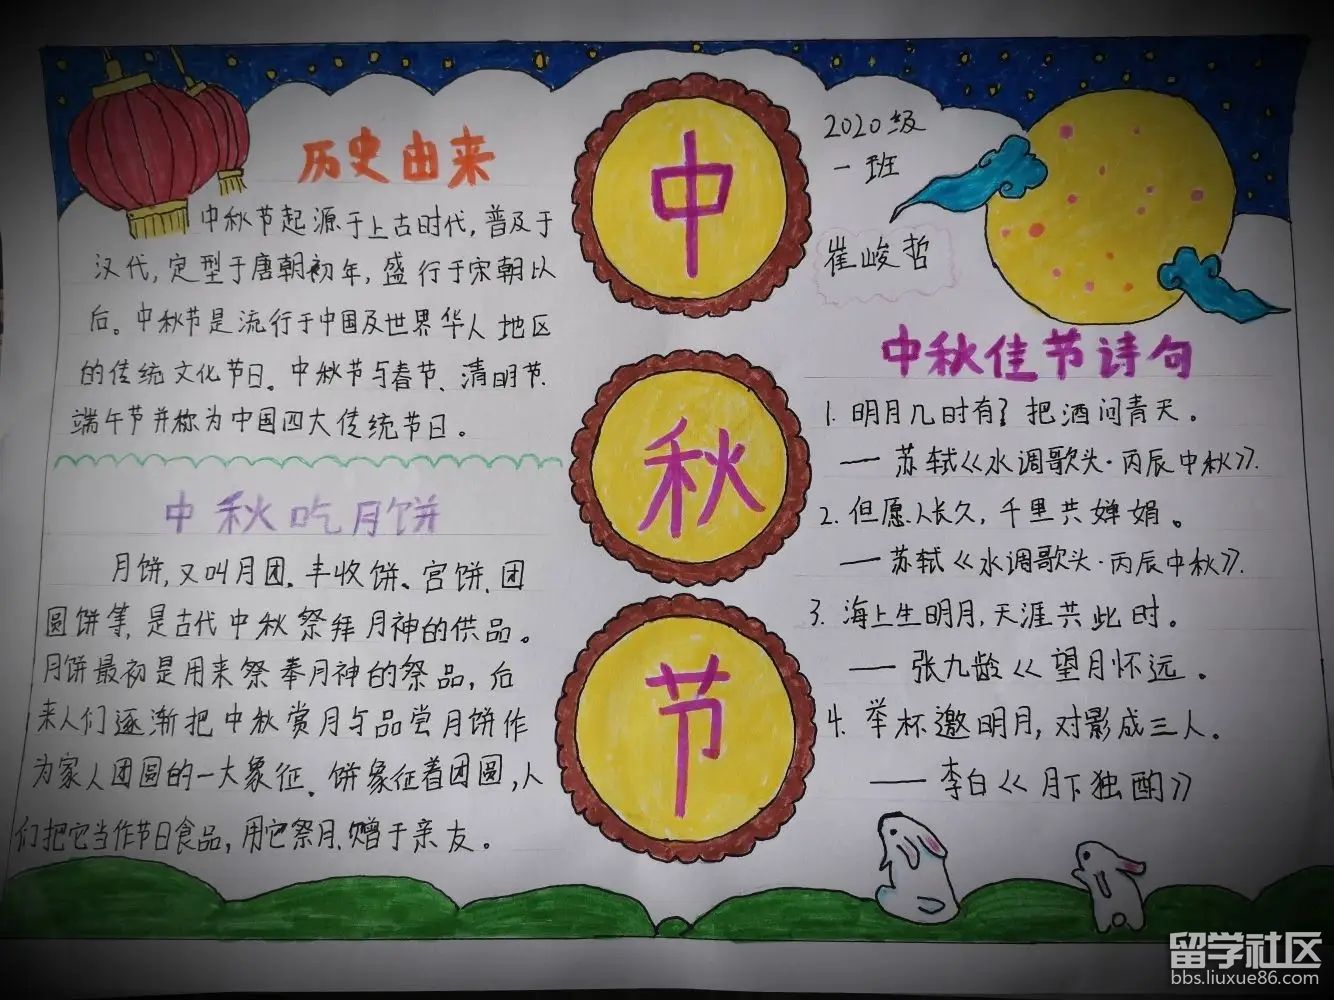 历史由来
中秋节起源于上古时代，普及于
汉代，定型于唐朝初年，盛行于宋朝以
后。中秋节是流行于中国及世界华人地区
的传统文化节日。中秋节与春节、清明节、
端午节并称为中国四大传统节日。
中秋吃月饼
月饼，又叫月团、丰收饼、宫饼、团
圆饼等，是古代中秋祭拜月神的供品。
月饼最初是用来祭奉月神的祭品，后
来人们逐渐把中秋赏月与品尝月饼作
为家人团圆的一大象征。饼象征着团圆，人
们把它当作节日食品，用它祭月、赠于亲友。
中
秋
节
2020级
一班
崔峻哲
中秋佳节诗句
1. 明月几时有？把酒问青天。
——苏轼《水调歌头·丙辰中秋》.
2. 但愿人长久，千里共婵娟。
——苏轼《水调歌头·丙辰中秋》.
3. 海上生明月，天涯共此时。
——张九龄《望月怀远。
4. 举杯邀明月，对影成三人。
——李白《月下独酌》
留学社区
bbs.liuxue86.com